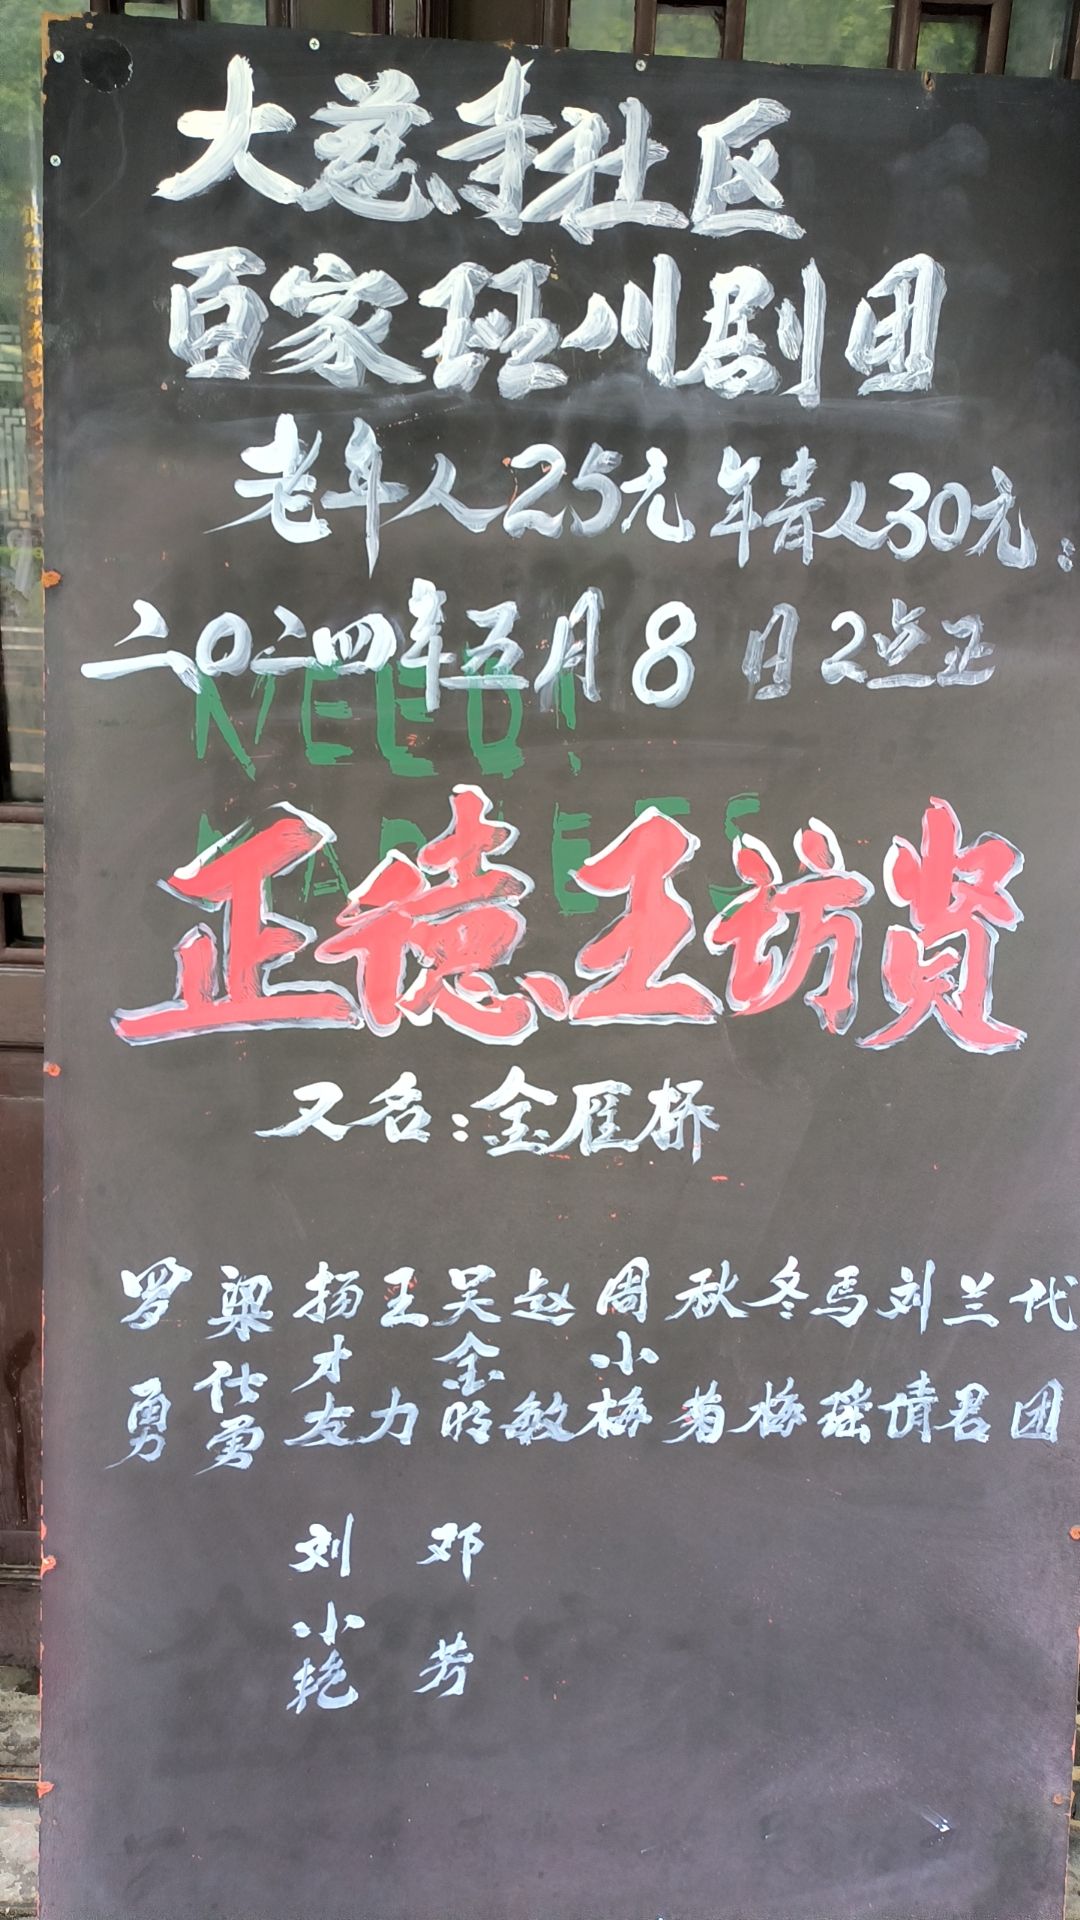 大慈寺社区
百家班川剧团
老年人25元 年青人30元:
二〇二四年五月8日2点正
NEED!
正德王访贤
又名:金雁桥
罗勇 梁仕勇 扬才友 王力 吴金明 赵敏 周小梅 秋菊 冬梅 马瑶 刘情 兰君 代团
刘小艳 邓芳